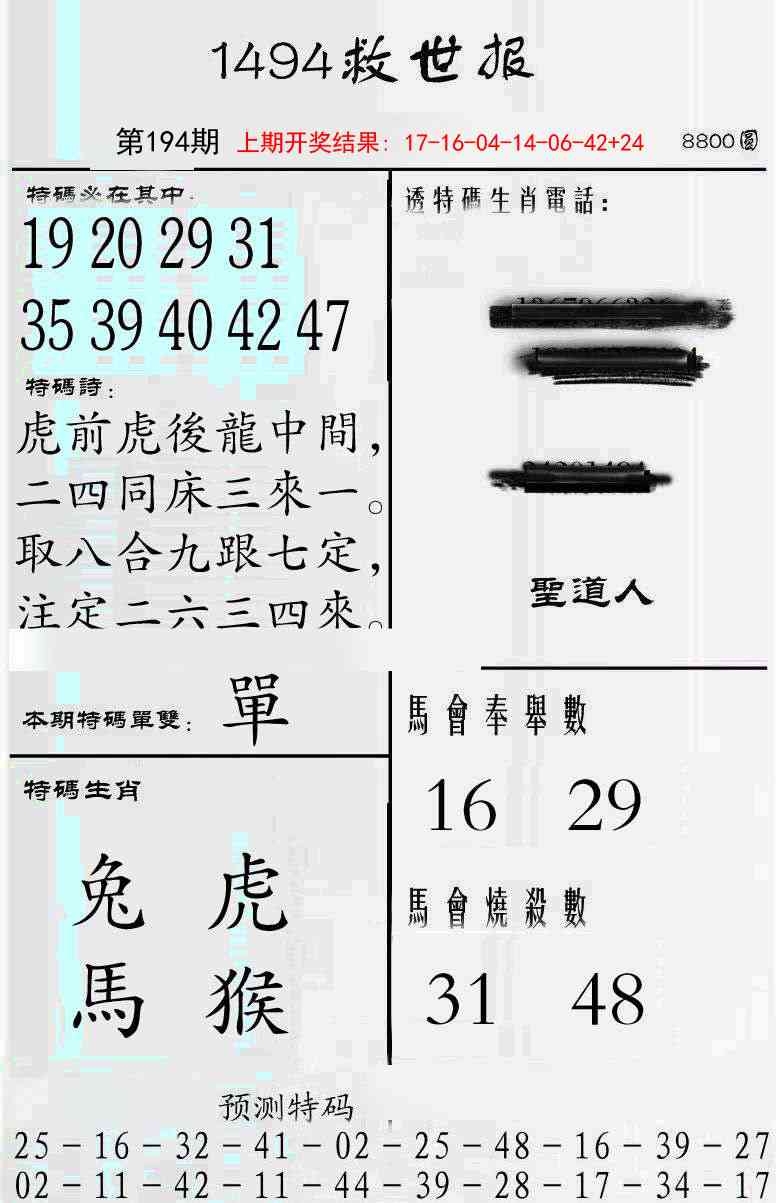 1494救世报
第194期 上期开奖结果：17-16-04-14-06-42+24 8800圓
特碼必在其中：
19 20 29 31
35 39 40 42 47
特碼詩：
虎前虎後龍中間，
二四同床三來一。
取八合九跟七定，
注定二六三四來。
本期特碼單雙：單
特碼生肖
兔 虎
馬 猴
透特碼生肖電話：
聖道人
馬會奉舉數
16 29
馬會燒殺數
31 48
预测特码
25－16－32－41－02－25－48－16－39－27
02－11－42－11－44－39－28－17－34－17